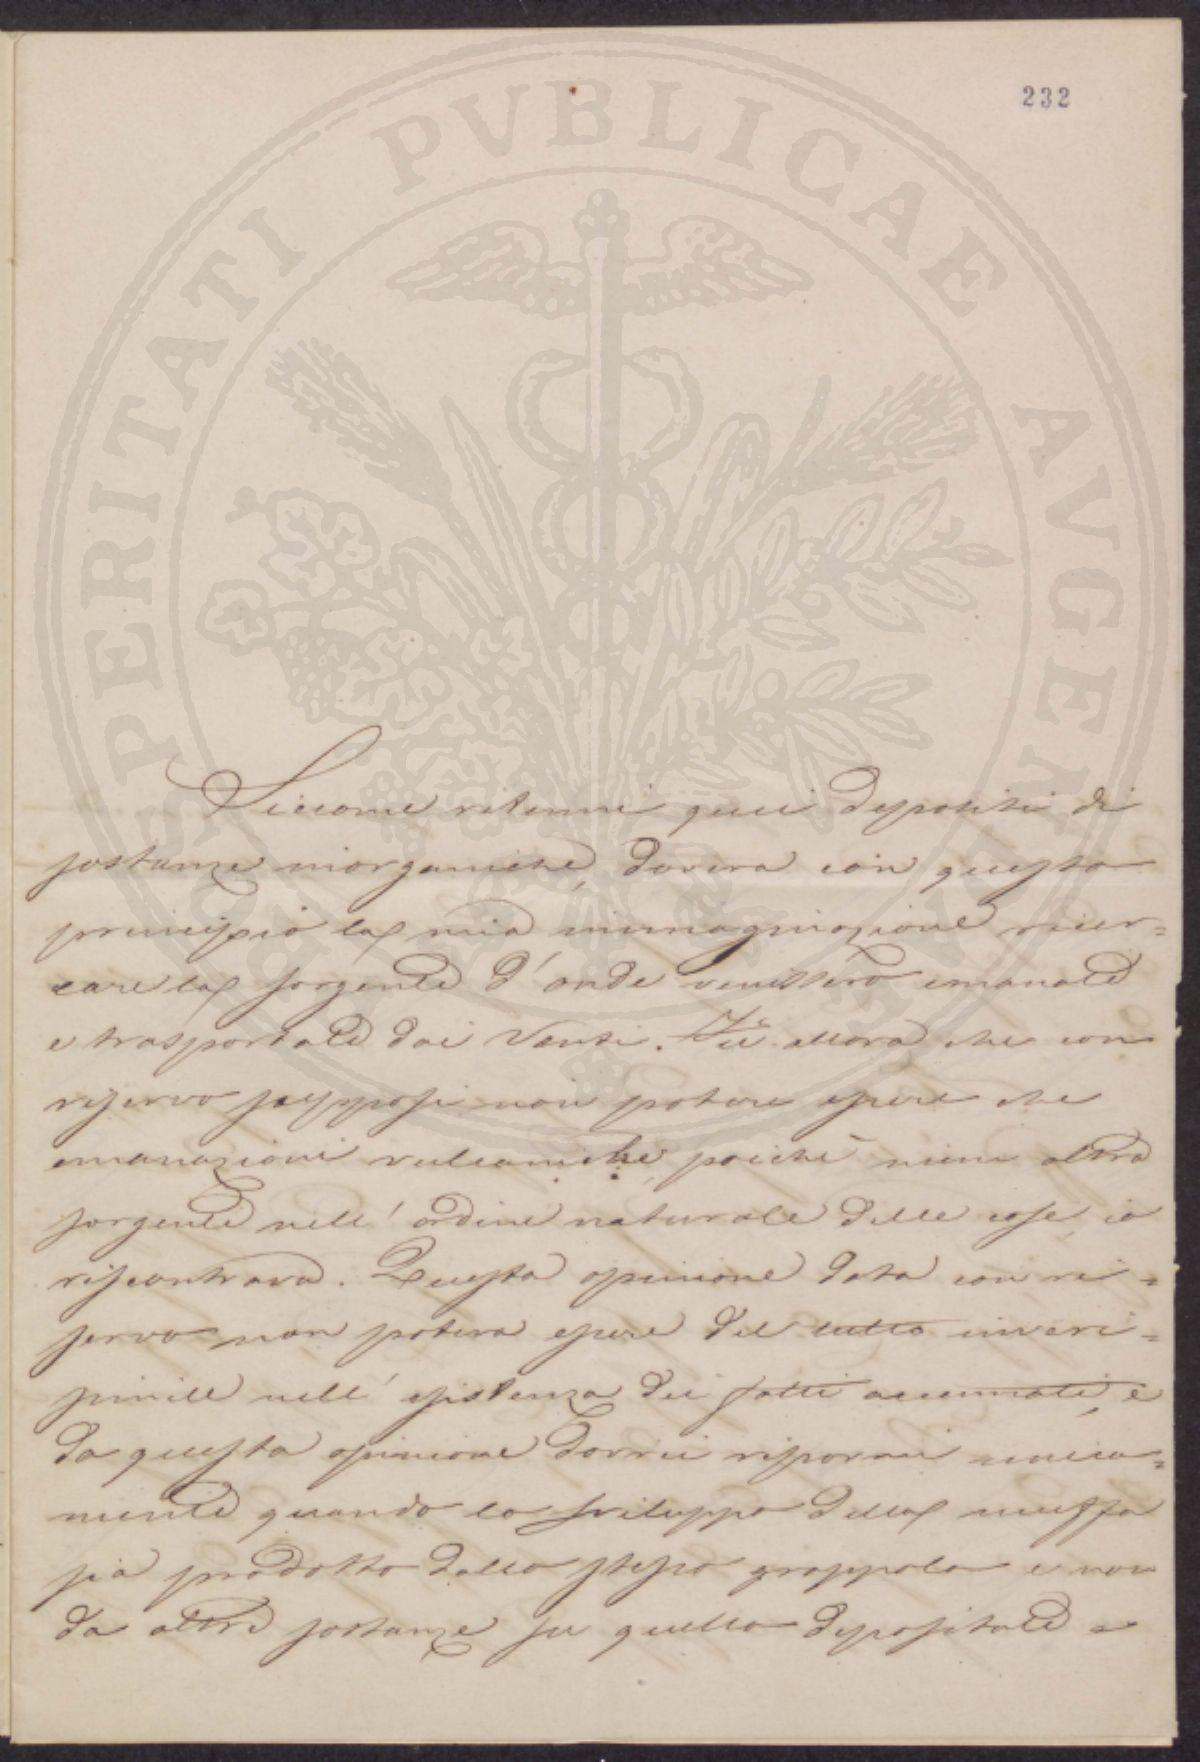 232
PROSPERITATI PVBLICAE AVGENDAE
Siccome ritenni quei depositi di
sostanze inorganiche, doveva con questo
principio la mia immaginazione ricer=
care la sorgente d'onde venissero emanate
e trasportate dai Venti. Fu allora che con
riserva supposi non potere essere che
emanazioni vulcaniche, poichè niun altra
sorgente nell'ordine naturale delle cose, io
riscontrava. Questa opinione data con ri=
serva non poteva essere del tutto inveri=
simile nell'esistenza dei fatti accennati, e
da questa opinione dovrei rispormi unica=
mente quando lo sviluppo della muffa
sia prodotto dallo stesso grappolo e non
da altre sostanze su quello depositate =